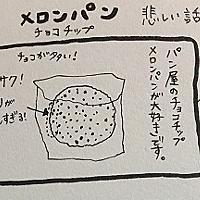 メロンパン
チョコチップ
悲しい話
パン屋のチョコチップ
メロンパンが大好きです。
チョコが多い!
サク!
すぎる!